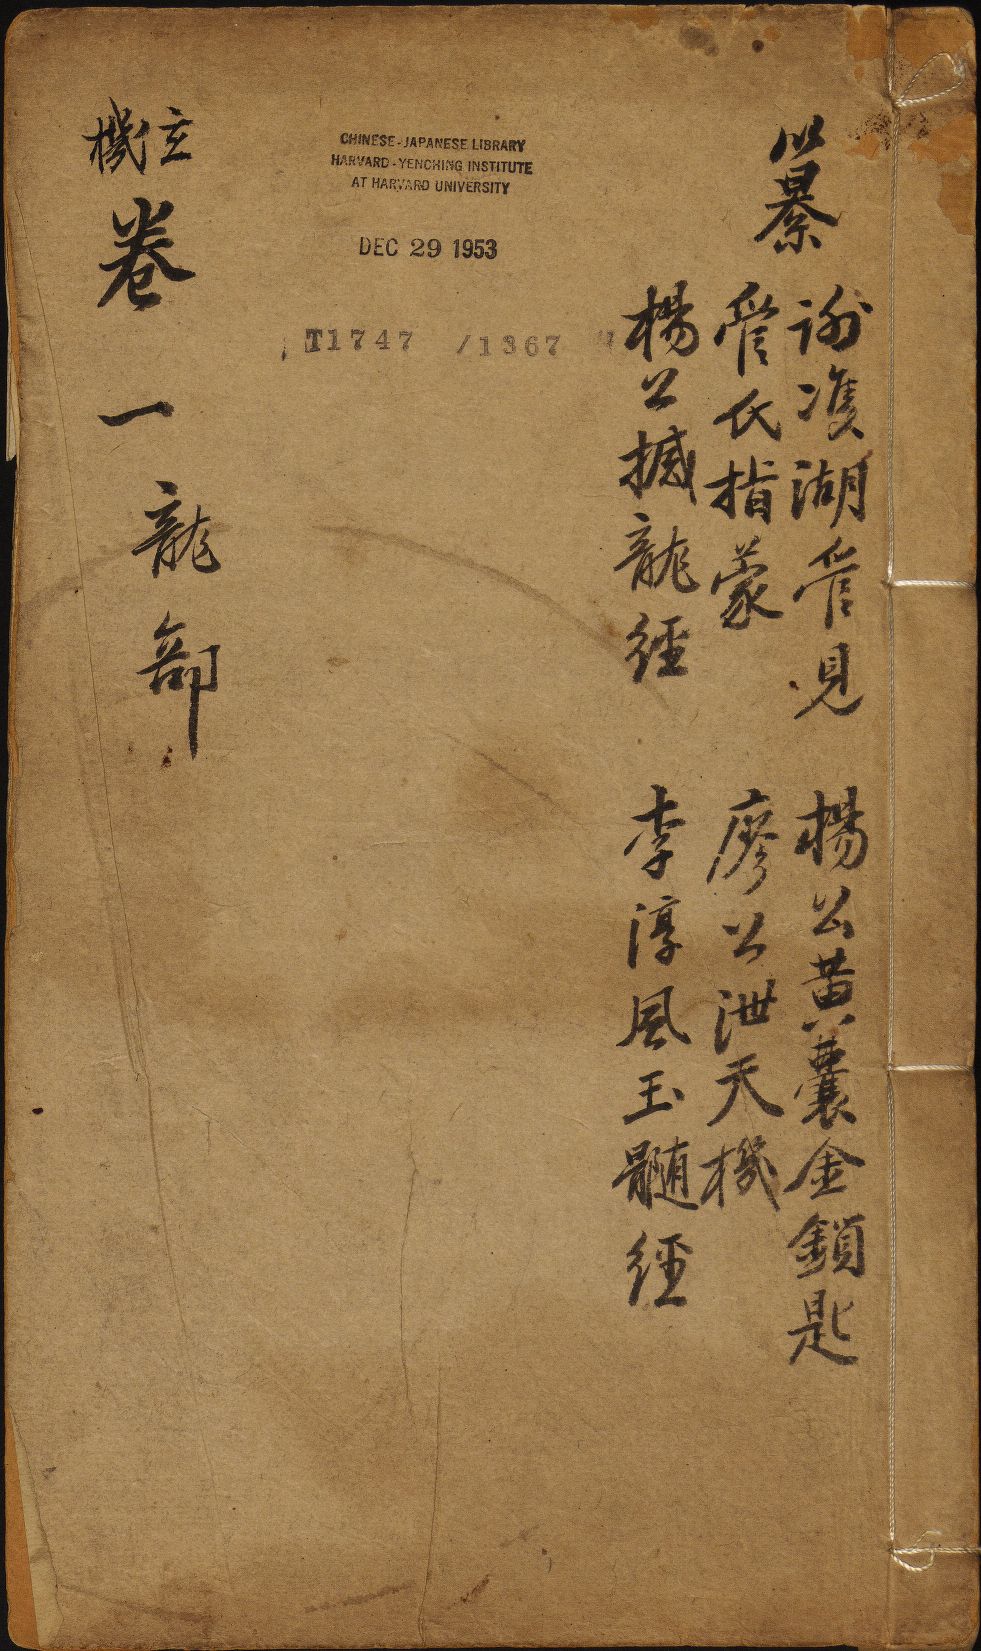 纂
謝雙湖管見 楊公黃囊金鎖匙
管氏指蒙 廖公泄天機
楊公撼龍經 李淳風玉髓經
CHINESE-JAPANESE LIBRARY
HARVARD-YENCHING INSTITUTE
AT HARVARD UNIVERSITY
DEC 29 1953
T1747 /1367
玄機
卷一龍部